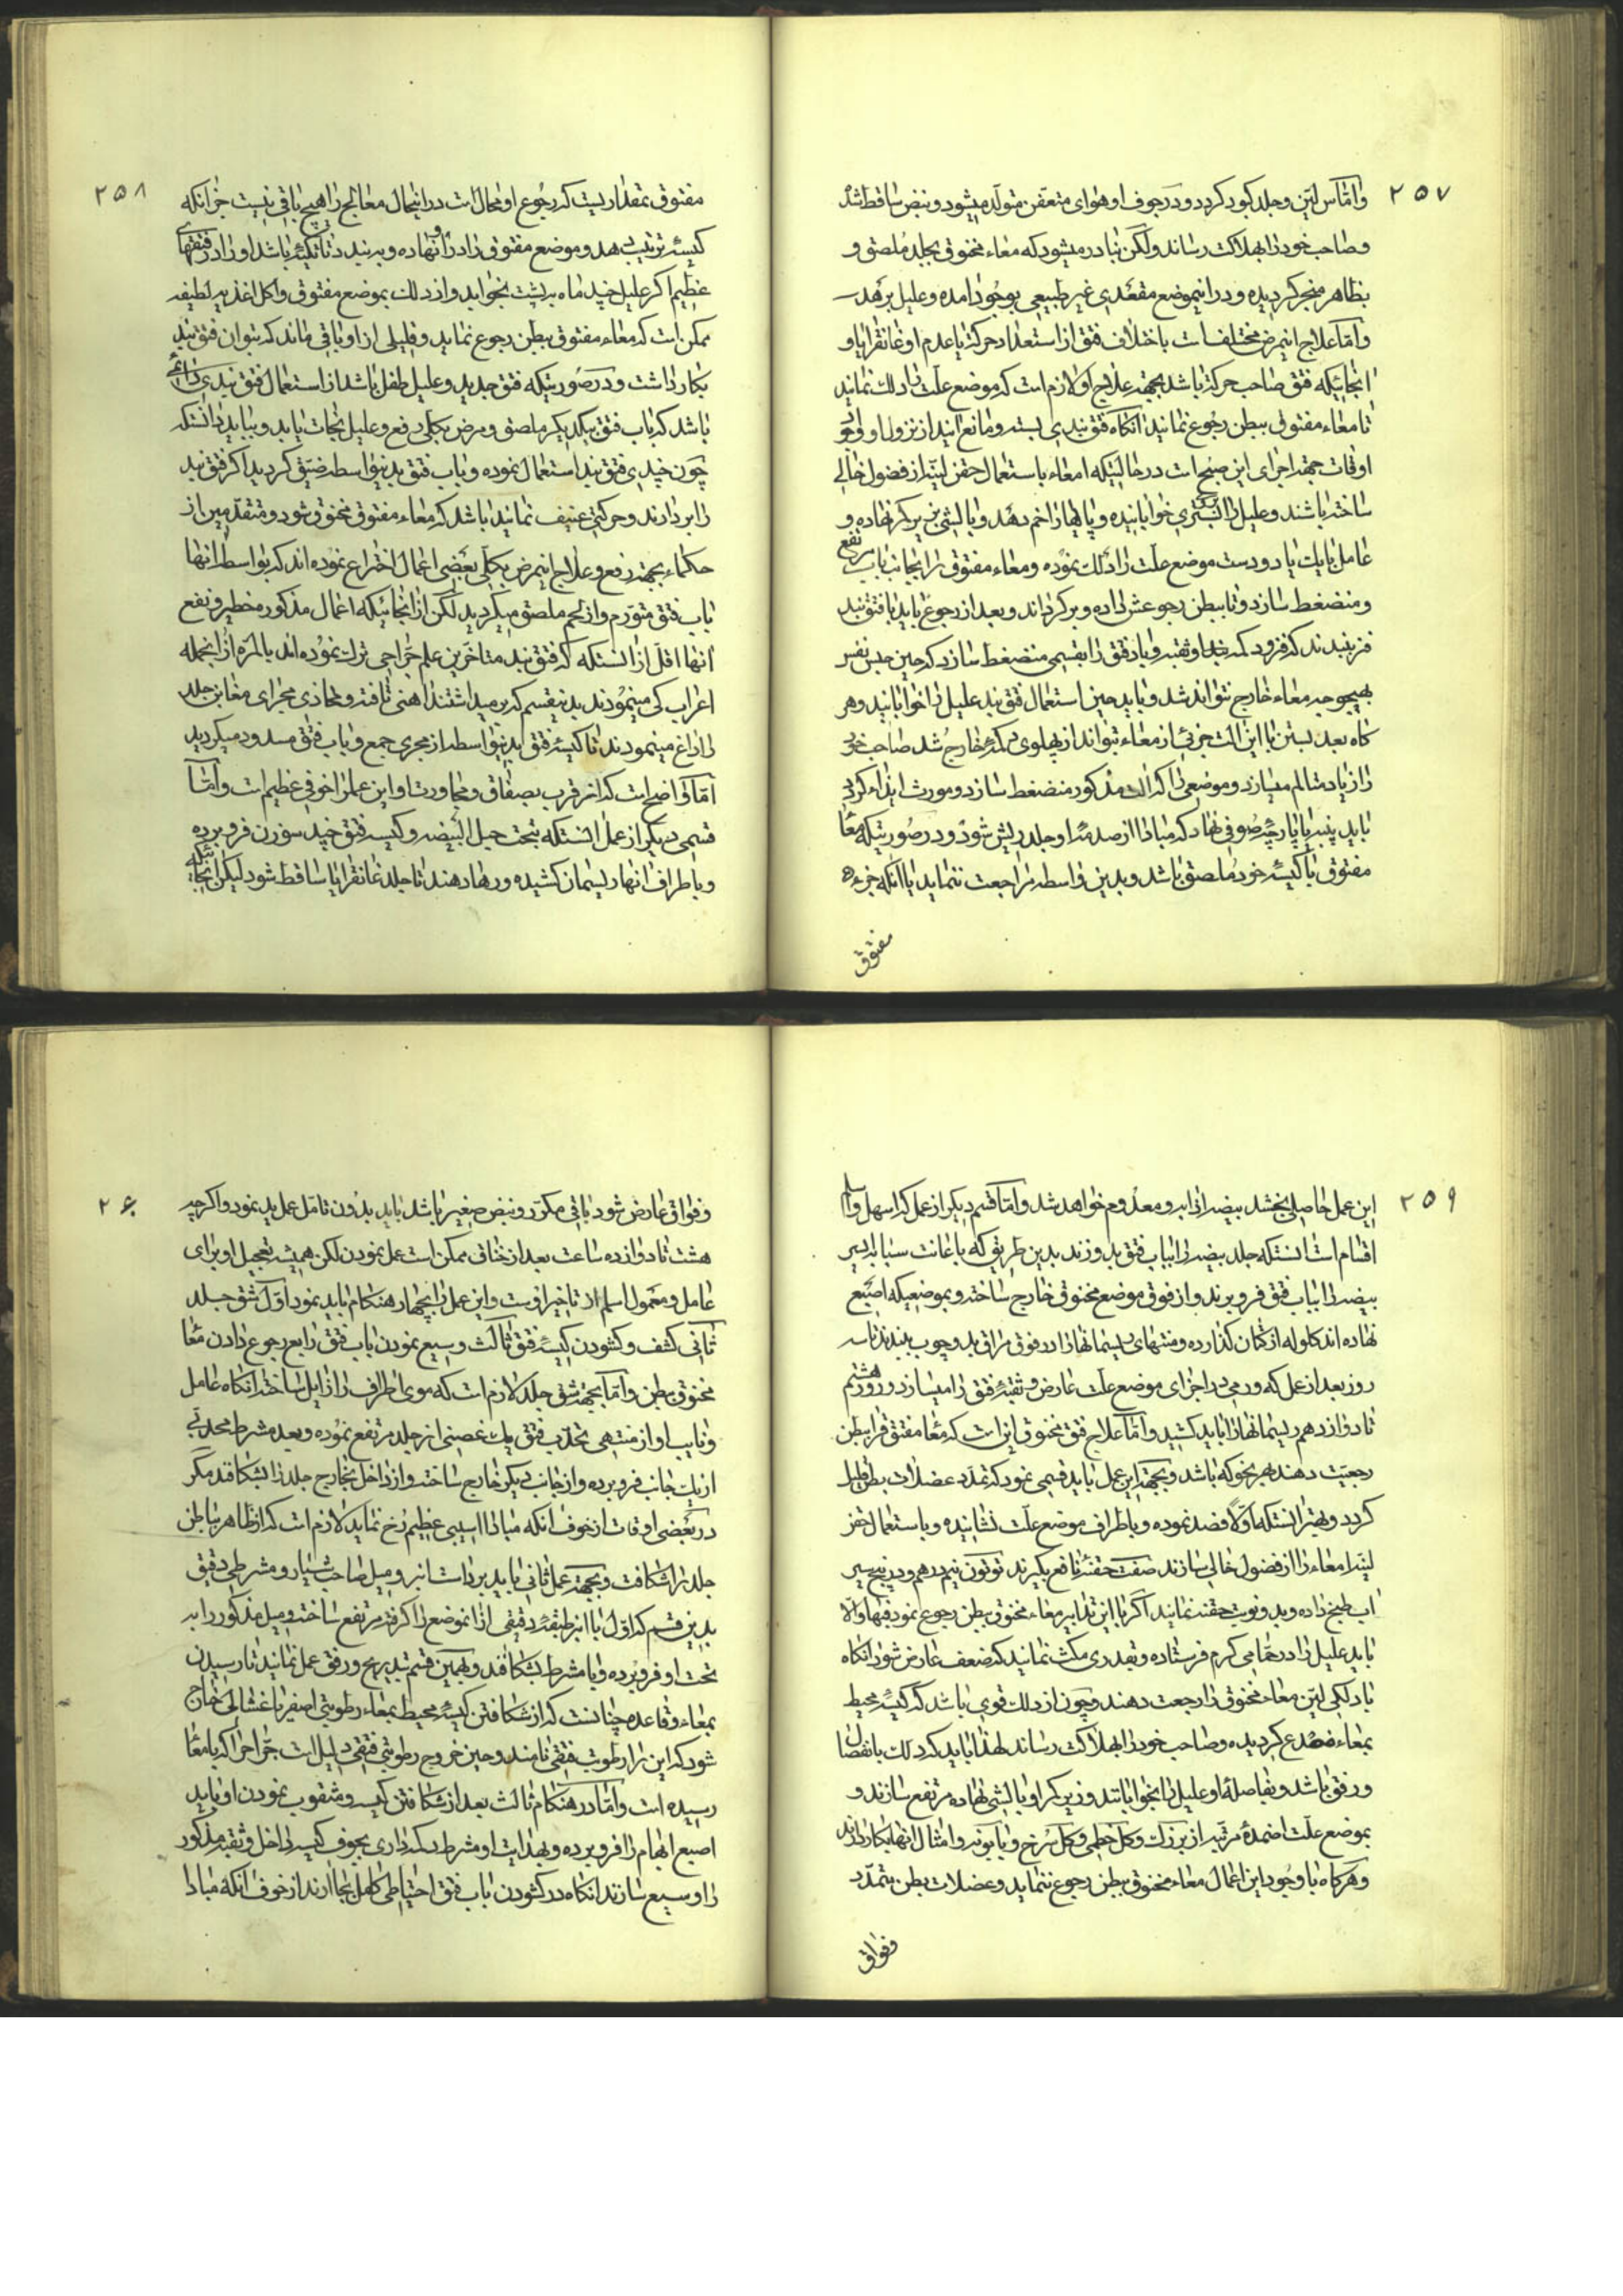 ۲۵۷
و امّا س لیّن و جلد کبود کردد و در جوف او هوای متعفّن متولّد میشود و نبض ساقط شد
و صاحب خود را بهلاکت رساند و لکن نادر میشود که معاء مخنوق بجلد ملصق و
بظاهر منجر کردیده و در انموضع مقعدی غیر طبیعی بوجود امده و علیل برهد
و امّا علاج اینمرض مختلفست باختلاف فتق از استعداد حرکة یا عدم او غانقرایا و
انجائیکه فتق صاحب حرکة باشد بجهة علاج او لازم است که موضع علّت را دلک نمایند
تا معاء مفتوق ببطن رجوع نمایند انکاه فتق بندی بسته و مانع ایند از نزول او و
اوقات جهة اجرای این صبح است در حالتیکه امعاء باستعمال حقن لیّنه از فضول خالی
ساخته باشند و علیل را بر بستری خوابانیده و پایها را خم دهند و بالشی زیر کمر نهاده و
عامل با یک یا دو دست موضع علّت را دلک نموده و معاء مفتوق را بجانب باب مرتفع
و منضغط سازد و تا ببطن رجوعش داده و بر کرداند و بعد از رجوع باید با فتق بند
فرو بندند که فرود کمه و ثقبه و باد فتق را بقسمی منضغط سازد که حین حبس نفس
بهیچوجه معاء خارج نتواند شد و باید حین استعمال فتق بند علیل را خوابانید و هر
کاه بعد بستن با این الت جزئی از معاء بتواند از پهلوی دکمه خارج شد صاحب خود
را زیاد متالم میسازد و موضعی را که الت مذکور منضغط سازد و مورث ایذاء کردد
باید پنبه یا پارچهٔ صوفی نهاد که مبادا از صدمهٔ او جلد ریش شود و در صورتیکه معاء
مفتوق با کیسهٔ خود ملصق باشد و بدین واسطه مراجعت ننماید یا انکه جزء
مفتوق
۲۵۸
مفتوق بمقداریست که رجوع او محال است در اینحال معالج را هیچ باقی نیست جز انکه
کیسهٔ ترتیب دهد و موضع مفتوق را در ان نهاده و ببندد تا تکیهٔ باشد او را و در فتقهای
عظیم اکر علیل چند ماه بر پشت بخوابد و از دلک بموضع مفتوق و اکل اغذیهٔ لطیفه
ممکن است که معاء مفتوق ببطن رجوع نماید و قلیلی از او باقی ماند که بتوان فتق بند
بکار داشت و در صورتیکه فتق جدید و علیل طفل باشد از استعمال فتق بندی دائمی
باشد که باب فتق بیکدیکر ملصق و مرض بکلّی دفع و علیل نجات یابد و بباید دانستکه
چون چندی فتق بند استعمال نموده و باب فتق بدینواسطه ضیّق کردید اکر فتق بند
را بر دارند و حرکتی عنیف نمایند باشد که معاء مفتوق مخنوق شود و متقدّمین از
حکماء بجهة رفع و علاج اینمرض بکلّی بعضی اعمال اختراع نموده اند که بواسطهٔ انها
باب فتق متورّم و از لحم ملصق میکردید لکن از انجائیکه اعمال مذکور مخطر و نفع
انها اقل از انستکه که فتق بند متاخّرین علم جرّاحی ترک نموده اند بالمرّه از انجمله
اعراب کی مینمودند بدینقسم که بر میداشتند اهنی تافته و محاذی مجرای مغابن جلد
را داغ مینمودند تا کیسهٔ فتق بدینواسطه از مجری جمع و باب فتق مسدود میکردید
امّا واضح است که از قرب بصفاق و مجاورت او این عمل را خوفی عظیم است و امّا
قسمی دیکر از عمل انستکه بتحت حبل البیضه و کیسه فتق چند سوزن فرو برده
و باطراف انها ریسمان کشیده و رها دهند تا جلد غانقرایا ساقط شود لیکن انجائیکه
۲۵۹
این عمل حاصلی بخشد بیضه را ابر و معدوم خواهد شد و امّا قسم دیکر از عمل که اسهل و اسلم
اقسام است انستکه جلد بیضه را بباب فتق بدوزند بدین طریق که با عانت سبّابه یسر
بیضه را بباب فتق فرو برند و از فوق موضع مخنوق خارج ساخته و بموضعیکه اصبع
نهاده اند کلوله از کتان کذارده و منتهای ریسمانها را در فوق مراق بدو چوب ببندند تا سه
روز بعد از عمل که ورمی در اجزای موضع علّت عارض و ثقبهٔ فتق را میسازد و روز هشتم
تا دوازدهم ریسمانها را باید کشید و امّا علاج فتق مخنوق این است که معاء مفتوق را ببطن
رجعیّت دهند بهر نحو که باشد و بجهة این عمل باید قسمی نمود که تمدّد عضلات بطن قلیل
کردد و بهتر انستکه اوّلاً فصد نموده و باطراف موضع علّت نشانیده و باستعمال حقن
لیّنه امعاء را از فضول خالی سازند صفت حقنهٔ نافع بکیرند توتون نیمدرهم و در پنج سیر
اب طبخ داده و بدو نوبت حقنه نمایند اکر با این تدابیر معاء مخنوق ببطن رجوع نمود فبها و الّا
باید علیل را در حمّامی کرم فرستاده و بقدری مکث نمایند که ضعف عارض شود انکاه
با دلکی لیّن معاء مخنوق را رجعت دهند و چون از دلک قوی باشد که کیسهٔ محیط
بمعاء منصدع کردیده و صاحب خود را بهلاکت رساند لهذا باید که دلک بانفصال
و رفق باشد و بفاصلهٔ او علیل را بخوابانند و زیر کمر او بالشی نهاده مرتفع سازند و
بموضع علّت اضمدهٔ مرتّبه از بزرک و کل خطمی و کل سرخ و بابونه و امثال انها بکار دارند
و هر کاه با وجود این اعمال معاء مخنوق ببطن رجوع ننماید و عضلات بطن متمدّد
و فواق
۲۶۰
و فواق عارض شود باقی مکرّر و نبض صغیر باشد باید بدون تامّل عمل ید نمود و اکرچه
هشت تا دوازده ساعت بعد از خناق ممکن است عمل نمودن لکن همیشه تعجیل او برای
عامل و معمول اسلم از تاخیر اوست و این عمل را بچهار هنکام باید نمود اوّل شق جلد
ثانی کشف و کشودن کیسهٔ فتق ثالث وسیع نمودن باب فتق رابع رجوع دادن معاء
مخنوق ببطن و امّا بجهة شق جلد لازم است که موی اطراف را زایل ساخته انکاه عامل
و نایب او از منتهی تحدّب فتق یک غصنی از جلد مرتفع نموده و بعد مشرط محدبی
از یک جانب فرو برده و از جانب دیکر خارج ساخته و از داخل بخارج جلد را بشکافد مکر
در بعضی اوقات از خوف انکه مبادا اسیبی عظیم رخ نماید لازم است که از ظاهر بباطن
جلد را شکافت و بجهة عمل ثانی باید برداشت انبر و میل صاحب شیار و مشرطی دقیق
بدینقسم که اوّل با انبر طبقهٔ دقیقی از انموضع را کرفته مرتفع ساخته و میل مذکور را به
تحت او فرو برده و با مشرط بشکافد و بهمین قسم بتدریج و رفق عمل نمایند تا رسیدن
بمعاء و قاعده چنانست که از شکافتن کیسهٔ محیط بمعاء رطوبتی اصفر یا غسّالی خارج
شود که این را رطوبت فتقی نامند و حین خروج رطوبتی فتقی دلیل است جرّاح را که بامعاء
رسیده است و امّا در هنکام ثالث بعد از شکافتن کیسه و مثقوب نمودن او باید
اصبع ابهام را فرو برده و بهدایت او مشرط دکمه داری بجوف کیسه داخل و ثقبه مذکور
را وسیع سازند انکاه در کشودن باب فتق احتیاطی کامل بجا ارند از خوف انکه مبادا